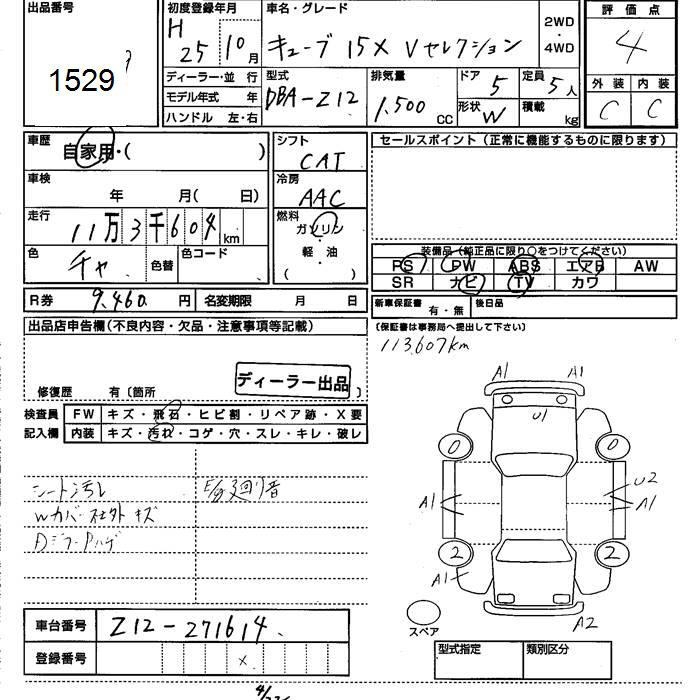 出品番号
1529
初度登録年月
H 25 10 月
車名・グレード
キューブ 15X Vセレクション
2WD
・
4WD
評価点
4
外装 内装
C C
ディーラー・並 行
モデル年式 年
ハンドル 左・右
型式
DBA-Z12
排気量
1,500 CC
ドア 5
形状 W
定員 5 人
積載 kg
車歴
自家用・( )
車検
年 月( 日)
走行
11万3千604 km
色
チャ
色替
色コード
シフト
CAT
冷房
AAC
燃料
ガソリン
軽・油
( ・ )
セールスポイント (正常に機能するものに限ります)
装備品 (純正品に限り○をつけてください)
PS PW ABS エアB AW
SR ナビ TV カワ
R券 9,460 円 名変期限 月 日
新車保証書 有・無 後日品
(保証書は事務局へ提出して下さい)
113,607km
出品店申告欄(不良内容・欠品・注意事項等記載)
ディーラー出品
修復歴 有〔箇所 〕
検査員 FW キズ・飛石・ヒビ割・リペア跡・X要
記入欄 内装 キズ・汚れ・コゲ・穴・スレ・キレ・破レ
シート汚レ
E/g廻り音
Wカバー
キズ
A1 A1
U1
0 0
A1
U2
A1
2 2
A1
A2
スペア
車台番号 Z12-271614
登録番号 x
型式指定 類別区分